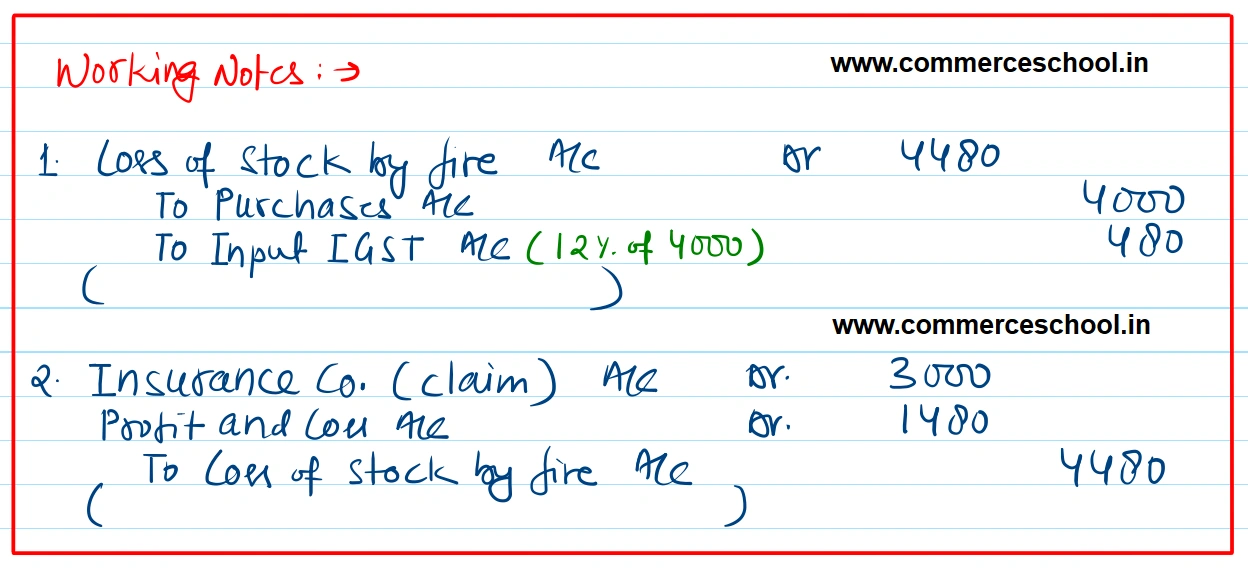 Working Notes : →
www.commerceschool.in
1. Loss of Stock by fire A/c Dr 4480
To Purchases A/c 4000
To Input IGST A/c (12% of 4000) 480
( )
www.commerceschool.in
2. Insurance Co. (claim) A/c Dr. 3000
Profit and Loss A/c Dr. 1480
To Loss of Stock by fire A/c 4480
( )